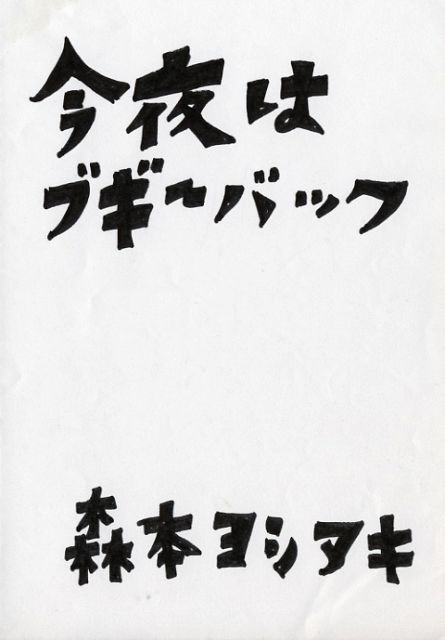 今夜は
ブギーバック
森本ヨシアキ